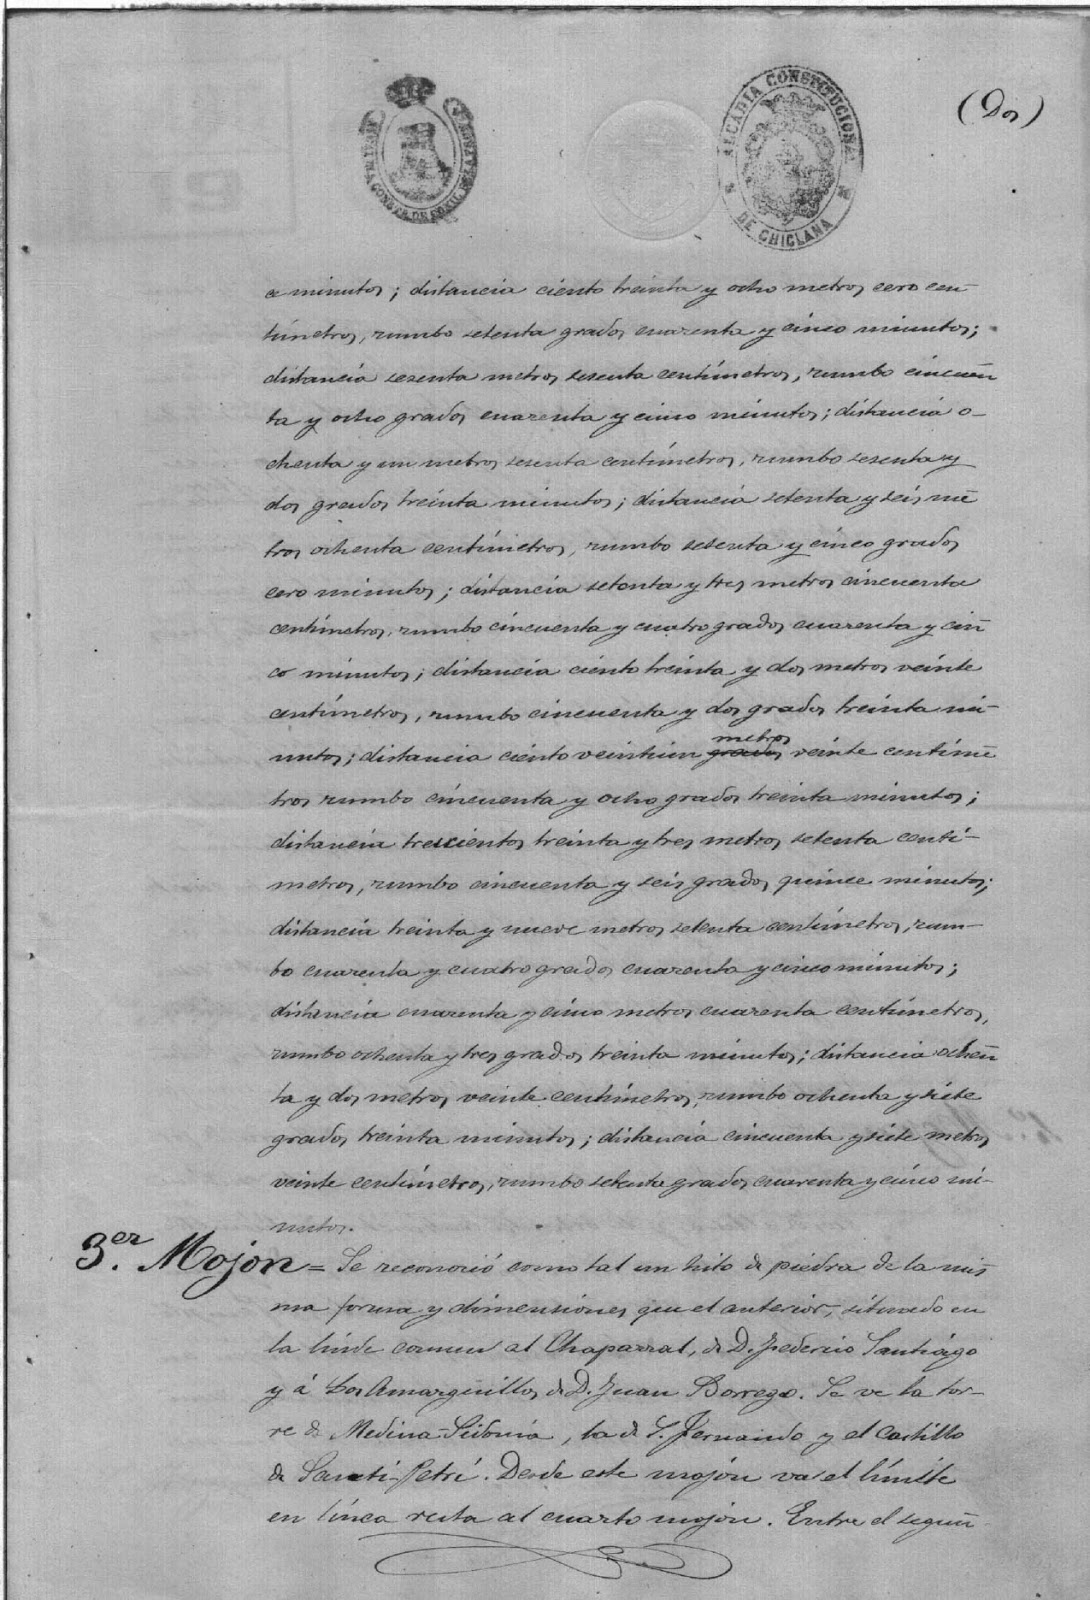 (Dos)
ALCALDIA CONSTITUCIONAL
DE CHICLANA
a minutos; distancia ciento treinta y ocho metros cero cen-
tímetros, rumbo setenta grados cuarenta y cinco minutos;
distancia sesenta metros sesenta centímetros, rumbo cincuen
ta y ocho grados cuarenta y cinco minutos; distancia o-
chenta y un metros sesenta centímetros, rumbo sesenta y
dos grados treinta minutos; distancia setenta y seis me
tros ochenta centímetros, rumbo sesenta y cinco grados
cero minutos; distancia setenta y tres metros cincuenta
centímetros, rumbo cincuenta y cuatro grados cuarenta y cin
co minutos; distancia ciento treinta y dos metros veinte
centímetros, rumbo cincuenta y dos grados treinta mi-
nutos; distancia ciento veintiun grados metros veinte centíme
tros rumbo cincuenta y ocho grados treinta minutos;
distancia trescientos treinta y tres metros setenta centí-
metros, rumbo cincuenta y seis grados quince minutos;
distancia treinta y nueve metros setenta centímetros, rum-
bo cuarenta y cuatro grados cuarenta y cinco minutos;
distancia cuarenta y cinco metros cuarenta centímetros,
rumbo ochenta y tres grados treinta minutos; distancia ochen
ta y dos metros veinte centímetros, rumbo ochenta y siete
grados treinta minutos; distancia cincuenta y siete metros
veinte centímetros, rumbo setenta grados cuarenta y cinco mi-
nutos.
3.er Mojon = Se reconoció como tal un hito de piedra de la mis
ma forma y dimensiones que el anterior, situado en
la linde comun al Chaparral, de D. Federico Santiágo
y á Los Amarguillos de D. Juan Borrego. Se ve la tor-
re de Medina-Sidonia, la de S. Fernando y el Castillo
de Santi-Petri. Desde este mojón va el límite
en línea recta al cuarto mojón. Entre el segun